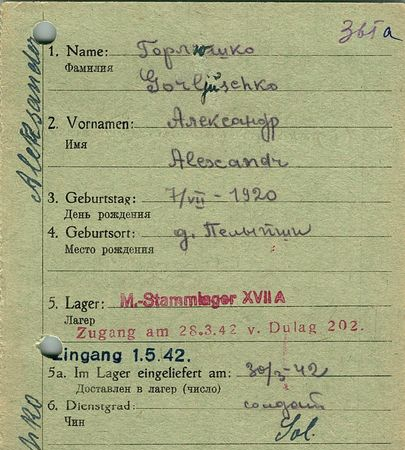 3b1a
Aleksander
1. Name: Горлюшко
Фамилия
Gorljuschko
2. Vornamen: Александр
Имя
Alexandr
3. Geburtstag: 7/VII - 1920
День рождения
4. Geburtsort: д.
Место рождения
5. Lager: M.-Stammlager XVII A
Лагер
Zugang am 28.3.42 v. Dulag 202.
Eingang 1.5.42.
5a. Im Lager eingeliefert am: 30/3-42
Доставлен в лагер (число)
6. Dienstgrad: солдат
Чин
Sol.